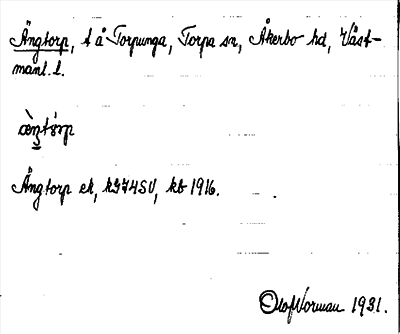 Ängtorp, t å Torpunga, Torpa sn, Åkerbo hd, Väst-
manl. l.
Ängtorp ek, k974SV, kb 1916.
Olof Norman 1931.